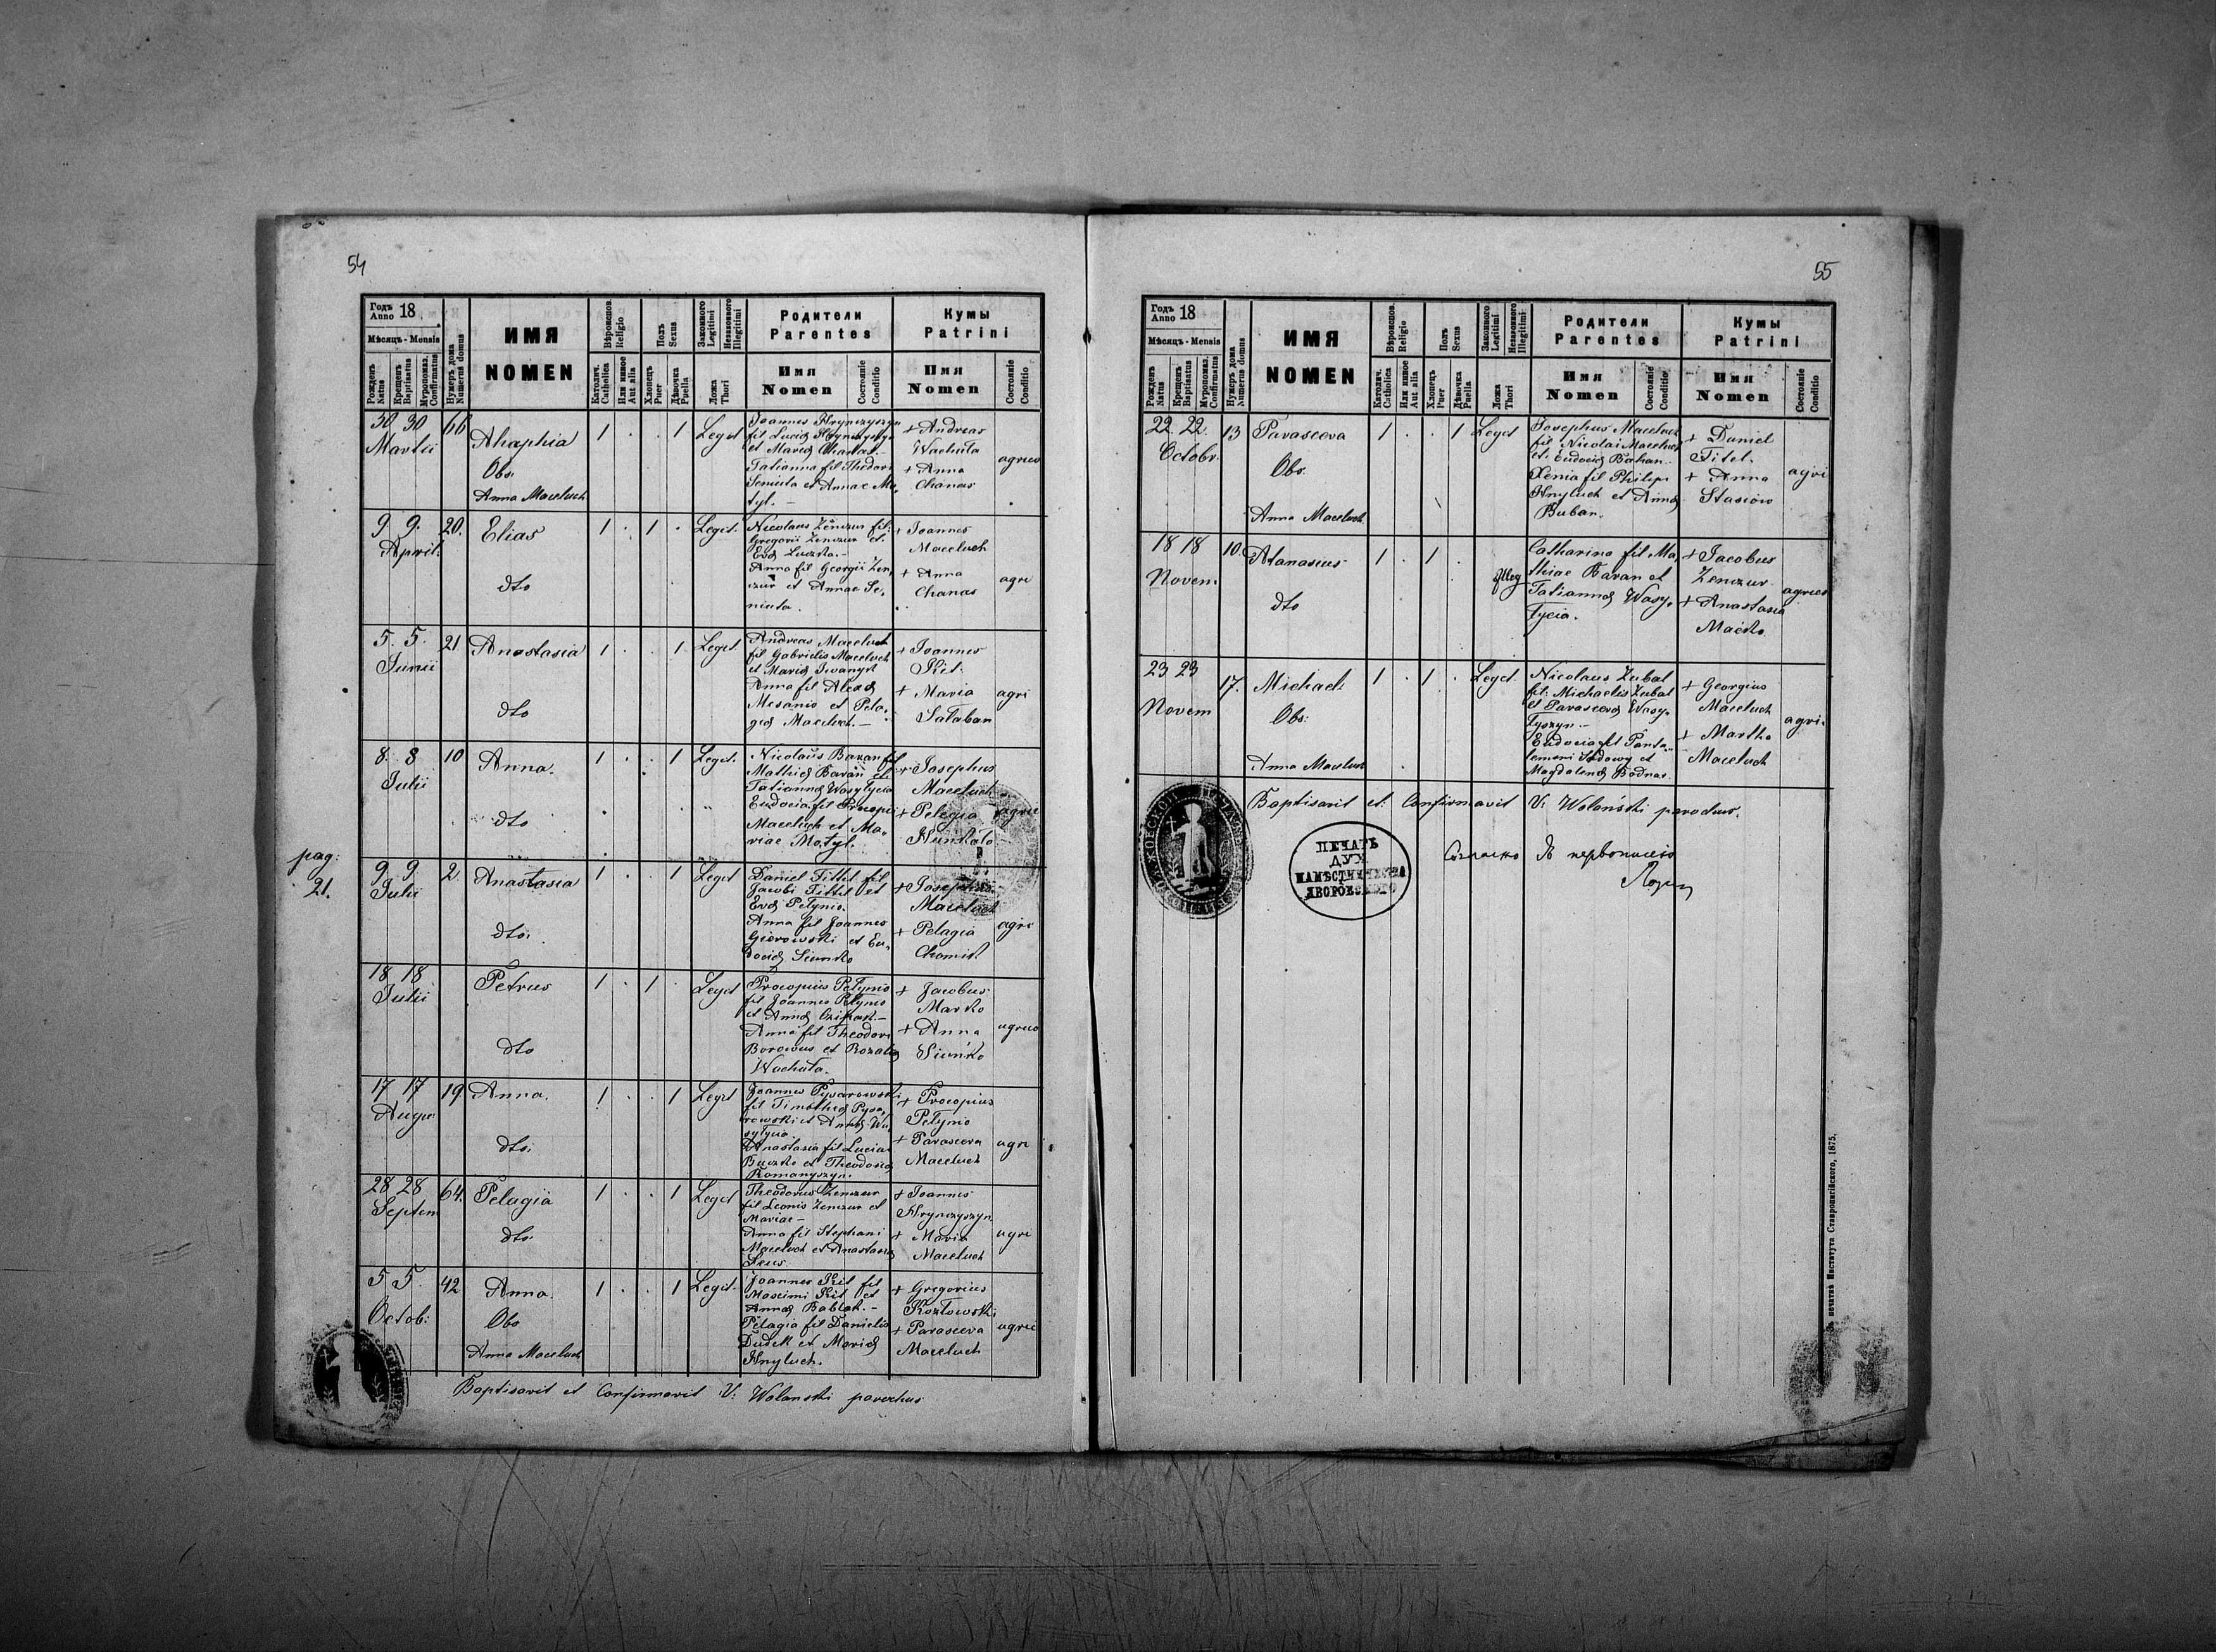 54
Годъ 18
Anno
Мѣсяцъ - Mensis
Рожденъ Natus
Крещенъ Baptisatus
Муропомаз. Confirmatus
Нумеръ дома Numerus domus
ИМЯ
NOMEN
Вѣроисповѣ. Religio
Католич. Catholica
Или иное Aut alia
Полъ Sexus
Хлопецъ Puer
Дѣвочка Puella
Законного Legitimi
Незаконного Illegitimi
Ложа Thori
Родители
Parentes
Имя
Nomen
Состоянiе Conditio
Кумы
Patrini
Имя
Nomen
Состоянiе Conditio
30 30 66
Martii
Ahaphia
Obs.
Anna Maceluch
1 . . 1 Legit
Joannes Hrynczyszyn
fil Lucae Hrynczyszyn
et Maria Chanas.-
Tatianna fil Theodori
Seniuta et Annae Mo,
tyl. -
+ Andreas
Wachuta
+ Anna
Chanas
agric
9 9. 20.
April.
Elias
dto
1 . 1 . Legit.
Nicolaus Zenczur fil.
Gregorii Zenczur et
Eva Luczko.-
Anna fil Georgii Zen,
czur et Annae Se,
niuta.
+ Joannes
Maceluch
+ Anna
Chanas
agri
5. 5. 21
Junii
Anastasia
dto
1 . 1 Legit
Andreas Maceluch
fil Gabrielis Maceluch
et Maria Iwanyk
Anna fil Alexa
Mesanio et Pela,
gia Maceluch.-
+ Joannes
Kit.
+ Maria
Sataban
agri
8. 8 10
Julii
Anna.
dto
1 . . 1 Legit.
Nicolaus Baran fil
Mathia Baran et
Tatianna Wasylycia
Eudocia fil Procopii
Maceluch et Ma,
riae Motyl.
+ Josephus
Maceluch
+ Pelegia
Hunkalo
agric
pag:
21.
9 9 2
Julii
Anastasia
dto.
1 . . 1 Legit
Daniel Tittel fil
Jacobi Tittel et
Eva Petynio.
Anna fil Joannes
Gierowski et Eu,
docia Siunko
+ Josephus
Maceluch
+ Pelagia
Chomik
agri
18 18
Julii
Petrus
dto
1 . 1 . Legit
Procopius Petynio
fil Joannes Petynio
Anna fil Theodori
Borowus et Rozalia
Wachuta.
+ Jacobus
Marko
+ Anna
Siunko
agric
17 17 19
Augus
Anna.
dto.
1 . . 1 Legit
Joannes Pywarowski
fil Timothea Pywa,
rowski et Anna Wa
sylycia.
Anastasia fil Lucia
Buczko et Theodosia
Romanyszyn.
+ Procopius
Petynio
+ Parasceva
Maceluch
agri
28 28 64.
Septem
Pelagia
dto
1 . . 1 Legit
Theodorus Zenczur
fil Leonis Zenczur et
Mariae -
Anna fil Stephani
Maceluch et Anastasia
+ Joannes
Hrynczyszyn
+ Maria
Maceluch
agri
5 5. 42
Octob:
Anna.
Obs
Anna Maceluch
1 . . 1 Legit.
Joannes Kit fil
Maximi Kit et
Anna Bablak. -
Pelagia fil Danielis
Dudek et Maria
Hnyluch.
+ Gregorius
Kozlowski
+ Parasceva
Maceluch
agric
Baptisavit et Confirmavit V: Wolanski parochus
55
Годъ 18
Anno
Мѣсяцъ - Mensis
Рожденъ Natus
Крещенъ Baptisatus
Муропомаз. Confirmatus
Нумеръ дома Numerus domus
ИМЯ
NOMEN
Вѣроисповѣ. Religio
Католич. Catholica
Или иное Aut alia
Полъ Sexus
Хлопецъ Puer
Дѣвочка Puella
Законного Legitimi
Незаконного Illegitimi
Ложа Thori
Родители
Parentes
Имя
Nomen
Состоянiе Conditio
Кумы
Patrini
Имя
Nomen
Состоянiе Conditio
22. 22. 13
Octobr.
Parasceva
Obs.
Anna Maceluch
1 . . 1 Legit
Josephus Maceluch
fil Nicolai Maceluch
et Eudocia Baban.
Xenia fil Philipi
Hnyluch et Anna
Buban.
+ Daniel
Titel.
+ Anna
Stasiow
agri
18 18 10.
Novem
Atanasius
dto
1 . 1 . Illeg
Catharina fil Ma,
thiae Baran et
Tatianna Wasy,
lycia.
+ Jacobus
Zenczur
+ Anastasia
Macko
agric
23 23 17.
Novem
Michael
Obs:
Anna Maceluch
1 . 1 . Legit.
Nicolaus Zubal
fil: Michaelis Zubal
et Parasceva Wasy,
lyszyn -
Eudocia fil Panta,
lemoni Sadowy et
Magdalena Bodnar.
+ Georgius
Maceluch
+ Martha
Maceluch
agri.
Baptisavit et Confirmavit V: Wolański parochus.
ПЕЧАТЬ
ДУХ.
НАМѢСТНИЧЕСТВА
ЯВОРОВСКОГО
Согласно съ первописею
Въ печатнѣ Института Ставропигiйского, 1875.